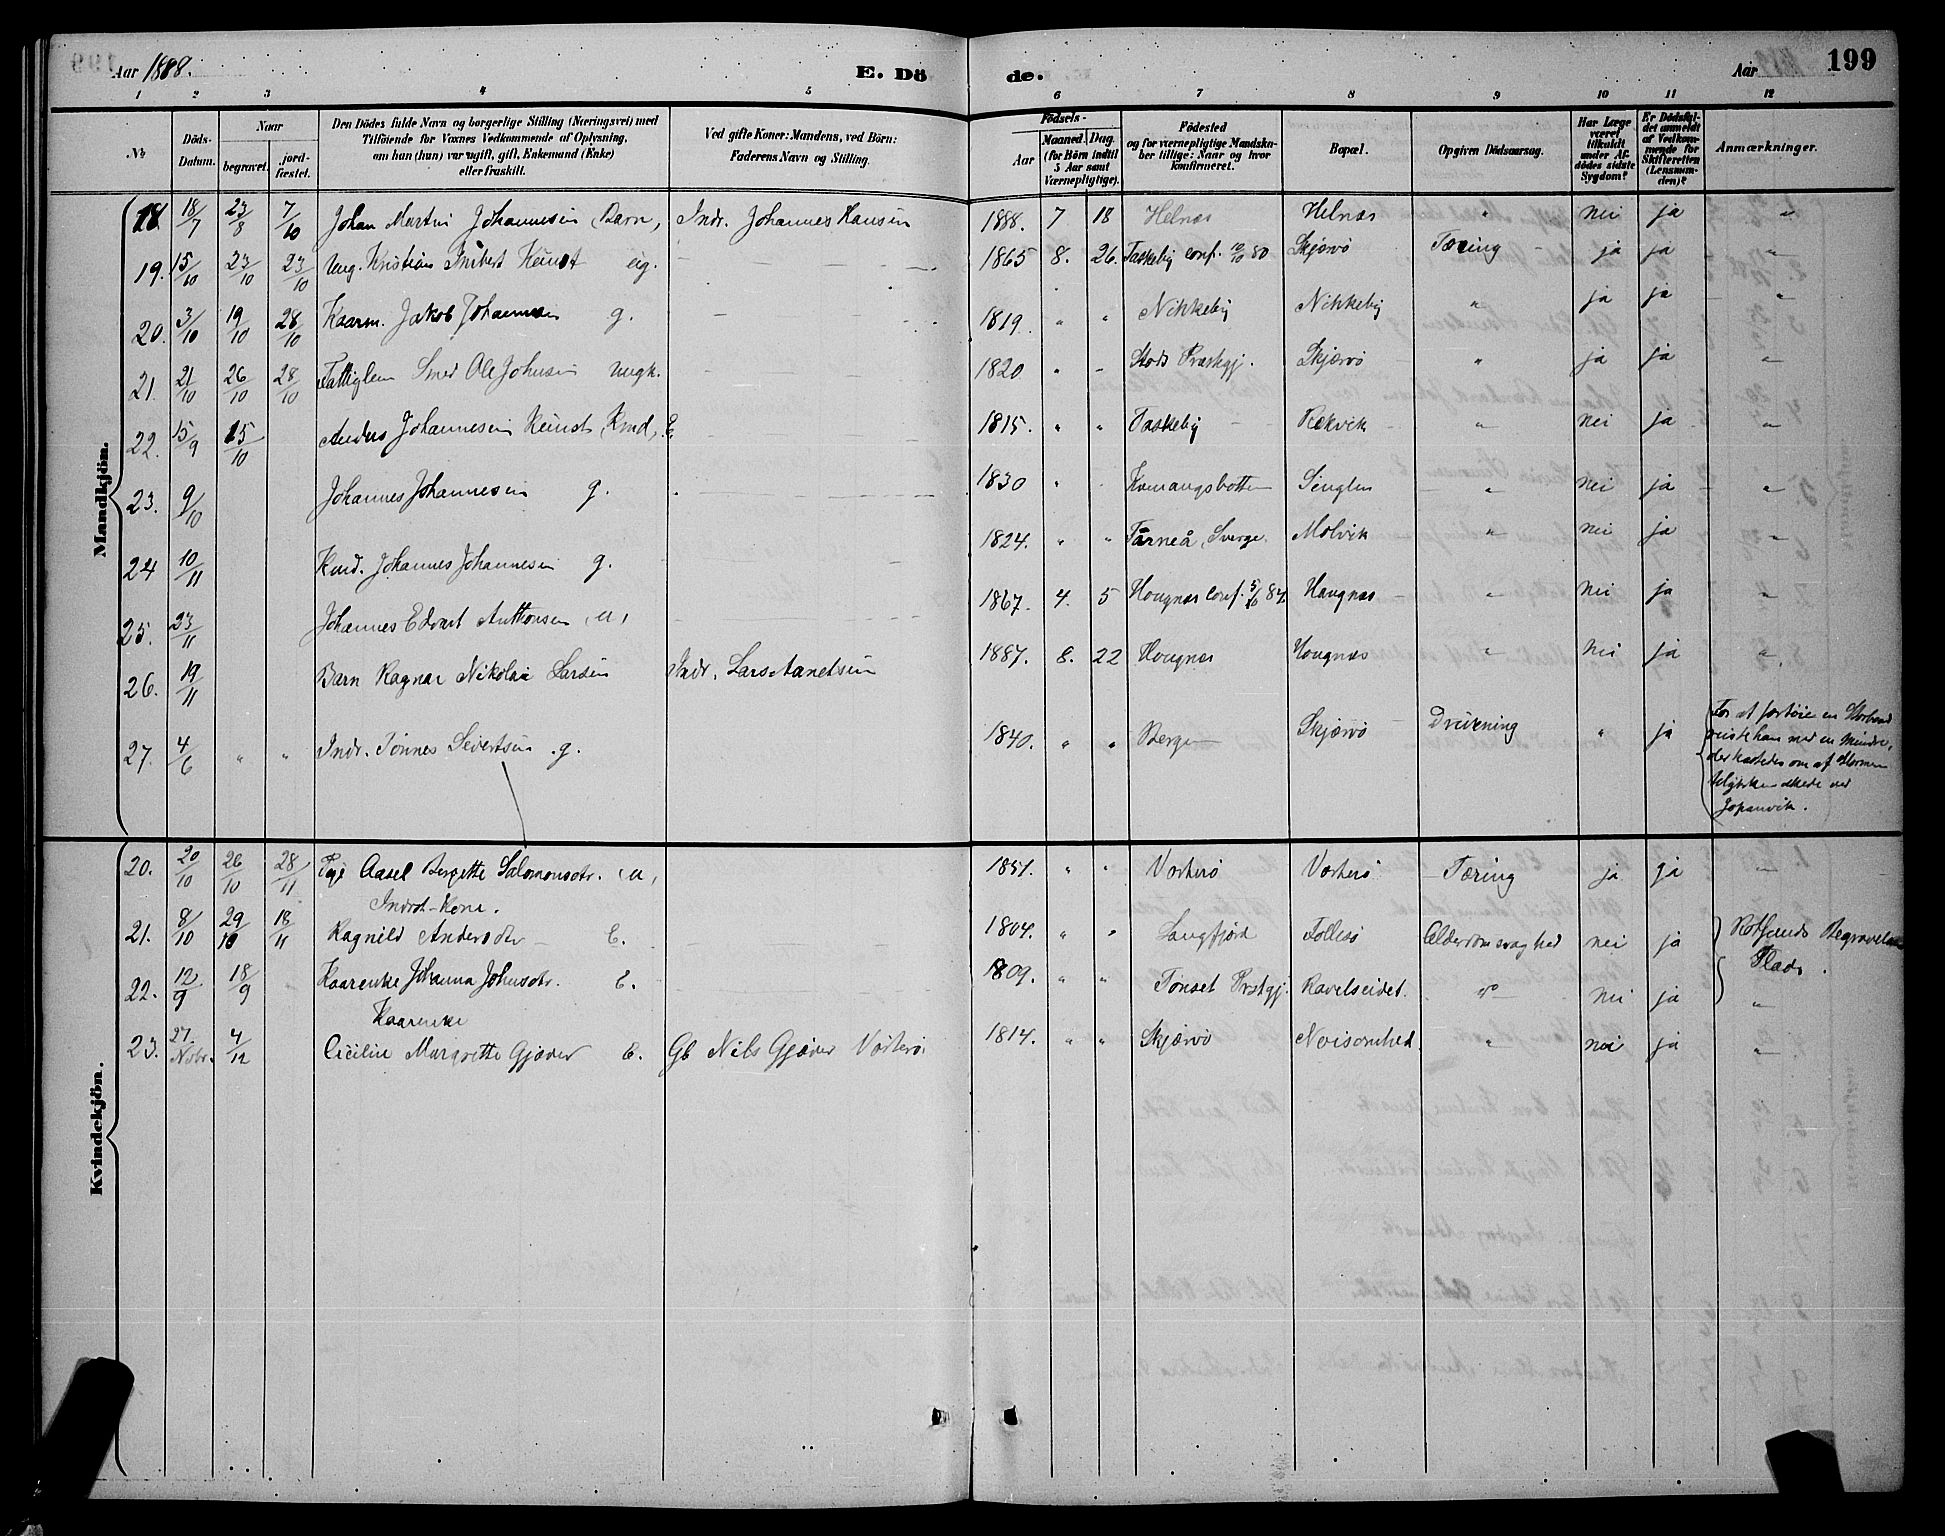 Aar 1888.
E. Dö
de.
Aar
199
1 2 3 4 5 6 7 8 9 10 11 12
No
Döds-Datum.
Naar
begravet.
jord-fæstet.
Den Dödes fulde Navn og borgerlige Stilling (Næringsvei) med Tilföiende for Voxnes Vedkommende af Oplysning, om han (hun) var ugift, gift, Enkemand (Enke) eller fraskilt.
Ved gifte Koner: Mandens, ved Börn: Faderens Navn og Stilling.
Födsels-
Aar
Maaned. Dag.
(for Börn indtil 5 Aar samt Værnepligtige).
Födested og for værnepligtige Mandskaber tillige: Naar og hvor konfirmeret.
Bopæl.
Opgiven Dödsaarsag.
Har Læge været tilkaldt under Afdödes sidste Sygdom?
Er Dödsfaldet anmeldt af Vedkommende for Skifteretten (Lensmanden)?
Anmærkninger.
Mandkjön.
18 18/7 23/8 7/10 Johan Martin Johannesen (Barn, Indr. Johannes Hansen 1888. 7 18 Helnæs Helnæs " nei ja "
19. 15/10 23/10 23/10 Ung. Kristian Kunst ug. 1865 8. 26. Taskeby conf. 12/10 80 Skjærvö Tæring ja ja "
20. 3/10 19/10 28/10 Kaarm. Jakob Johannesen g. 1819. " " Nikkeby Nikkeby " ja ja "
21. 21/10 26/10 28/10 Fattiglem Smed Ole Johnsen ungk. 1820 " " Stods Præstgj. Skjærvö " ja ja "
22. 15/9 15/10 Anders Johannesen Kunst, Kmd, E. 1815. " " Taskeby Rekvik " nei ja "
23. 9/10 Johannes Johannesen g. 1830 " Kvænangsbotten Singlen " nei ja "
24 10/11 Kmd. Johannes Johannesen g. 1824. " " Tärneå, Sverge. Molvik " nei ja "
25. 23/11 Johannes Edvart Anthonsen, u, 1867. 4. 5 Hougnæs conf. 5/10 84. Haugnæs " nei ja "
26. 19/11 Barn Ragnar Nikolai Larsen Indr. Lars Anetsen 1887. 8. 22 Hougnæs Hougnæs " nei ja "
27. 4/6 " " Indr. Tönnes Sivertsen g. 1840. " " Bergen Skjærvö Drukning " ja
For at fortöie en Storbaad
reiste han med en mindre,
der kastedes om af Stormen
Ulykken skede ved
Jopanvik.
Kvindekjön.
20. 20/10 26/10 28/11 Pige Aasel Bergette Salomonsdtr. u, 1851. " " Vorterö Vorterö Tæring ja ja "
Indrst-Kone.
21. 8/10 29/10 18/11 Ragnild Andersdtr E. 1804. " " Langfjord Follesö Alderdomssvaghed nei ja Rotsunds Begravelses
Plads.
22. 12/9 18/9 " Kaarenke Johanna Johnsdtr. E. 1809. " " Tönset Prstgj. Ravelseidet. " nei ja "
Kaarenke
23. 27. Novbr. 4/12 Cicilie Margrette Gjæver E. Gb Nils Gjæver Vorterö 1814. " " Skjærvö Nöisomhed " nei ja "